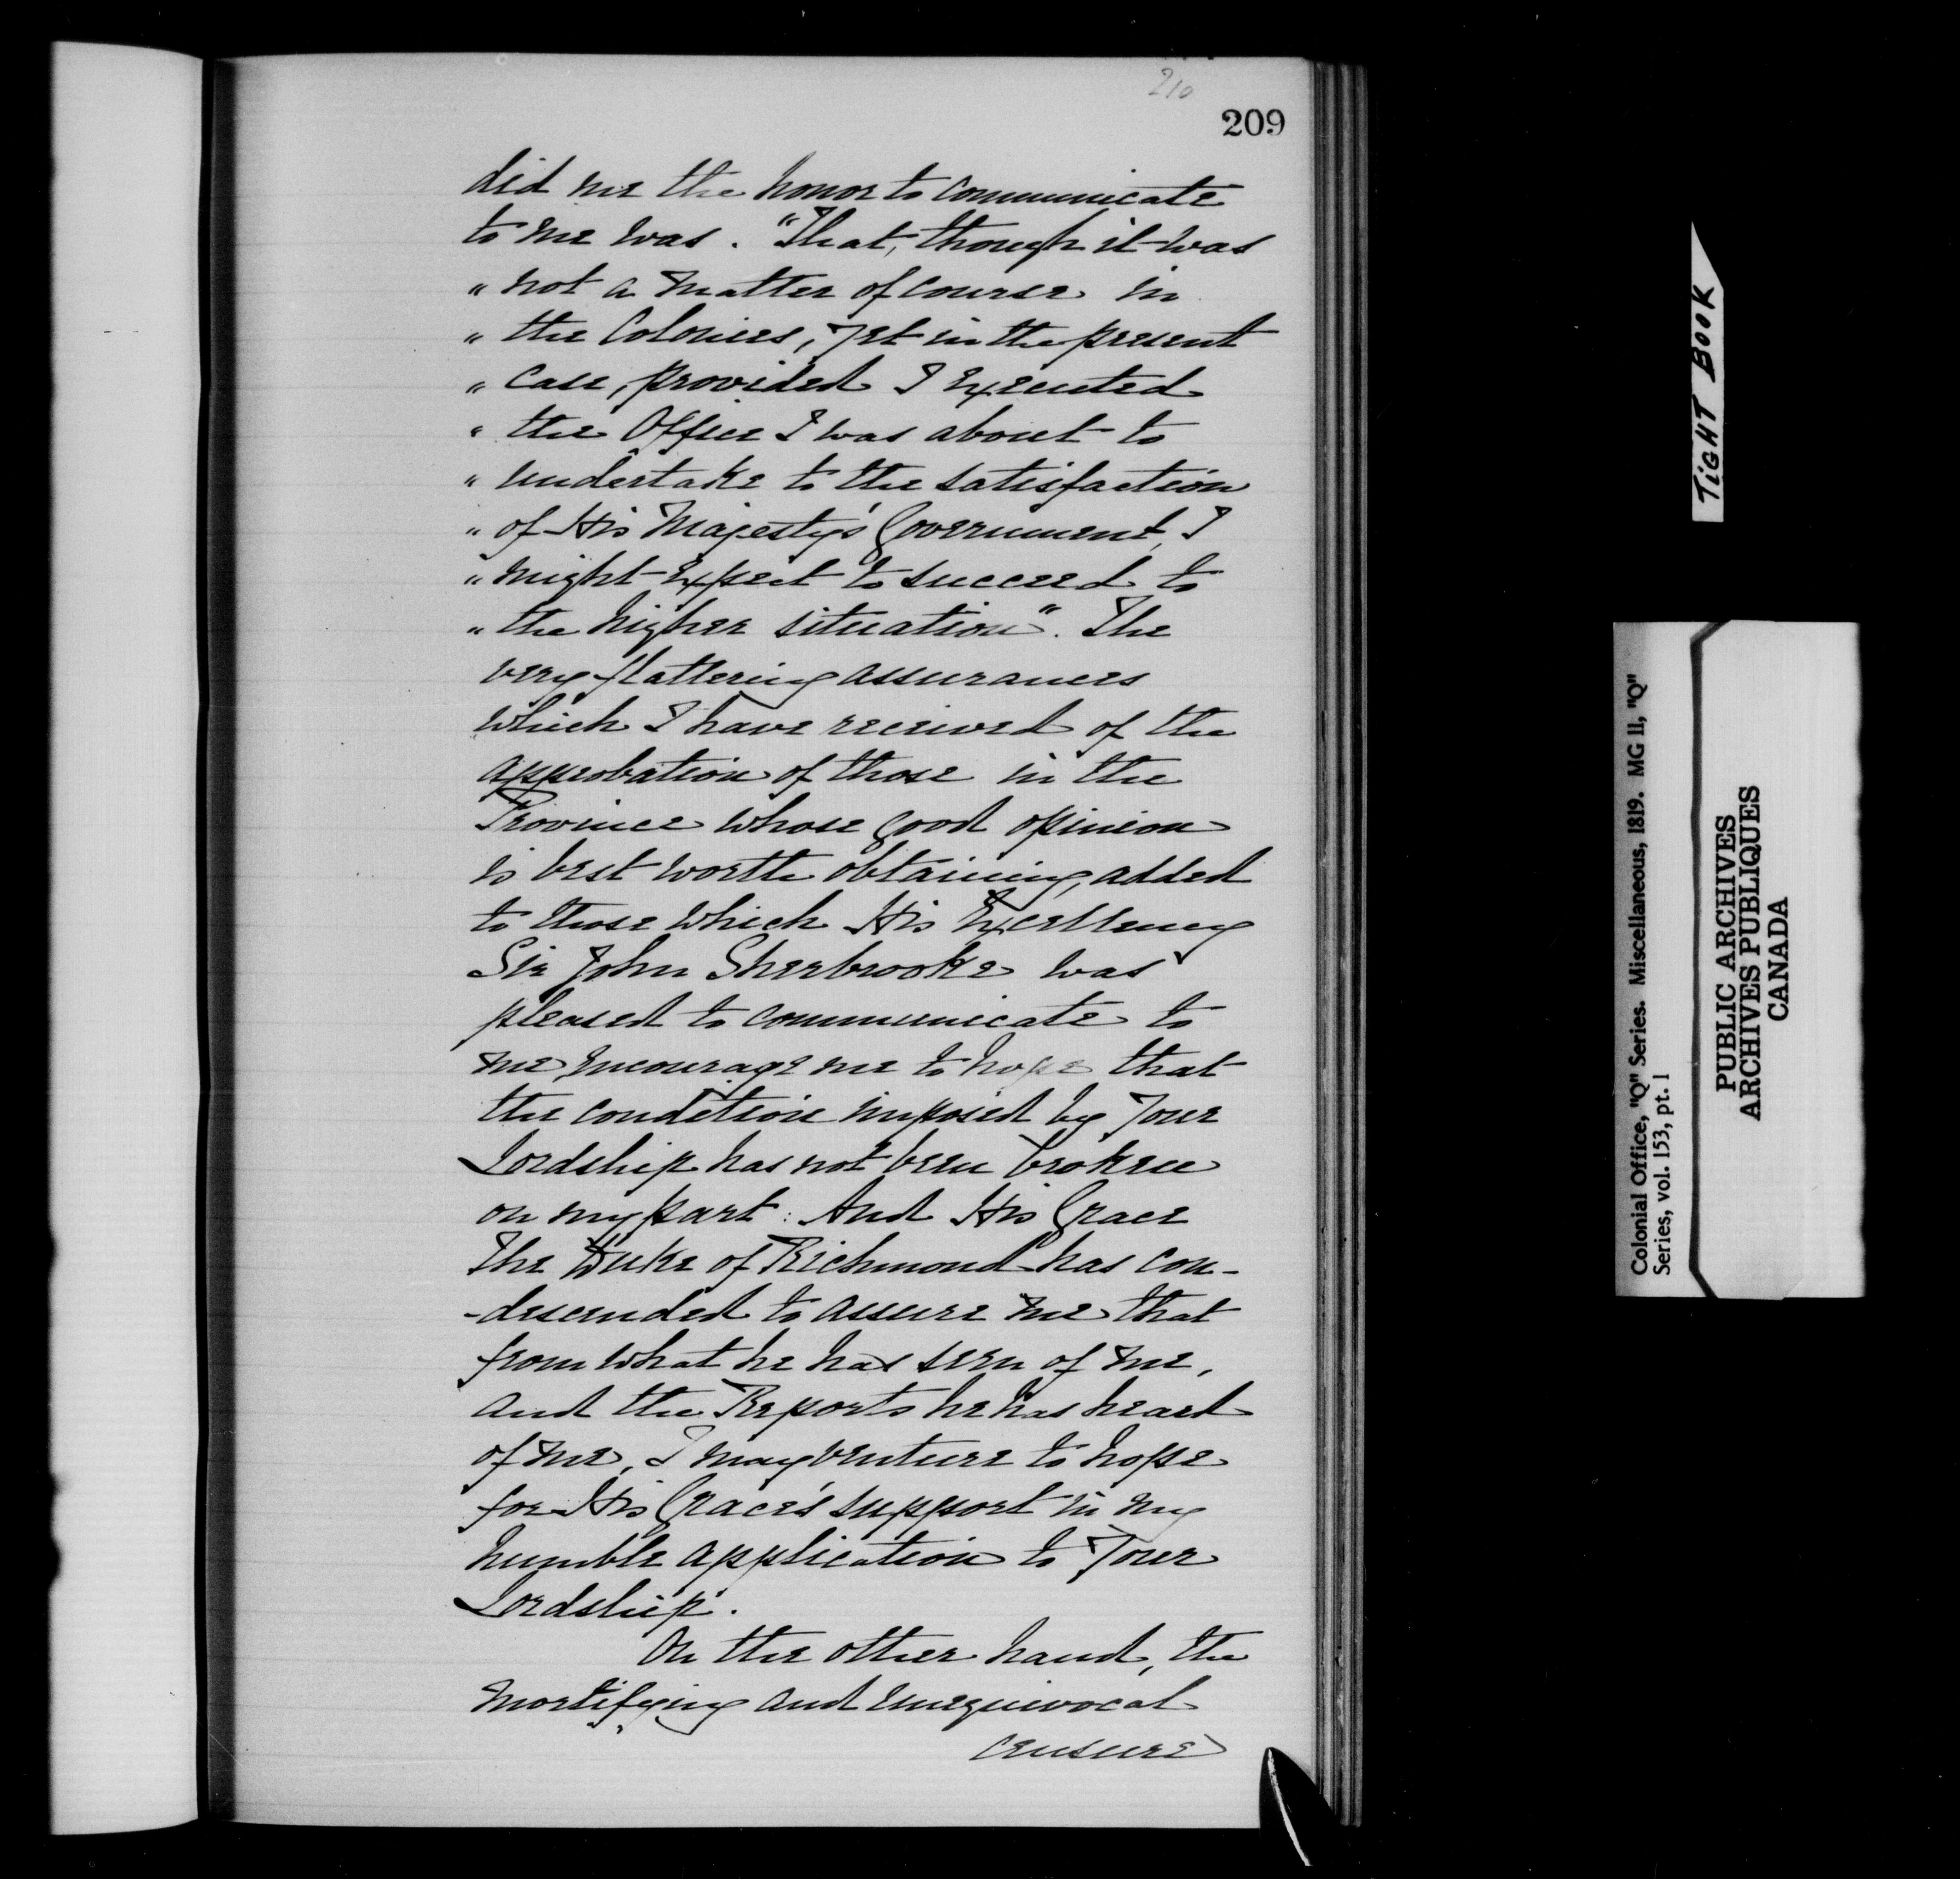 210
209
did me the honor to communicate
to me was. "That, though it was
" not a matter of course in
" the Colonies, yet in the present
" case, provided I executed
" the Office I was about to
" undertake to the satisfaction
" of His Majesty's Government, I
" might expect to succeed to
" the higher situation". The
very flattering assurances
which I have received of the
approbation of those in the
Province whose good opinion
is best worth obtaining, added
to those which His Excellency
Sir John Sherbrooke was
pleased to communicate to
me, encourage me to hope that
the condition imposed by Your
Lordship has not been broken
on my part: And His Grace
The Duke of Richmond has con-
-descended to assure me that
from what he has seen of me,
and the Reports he has heard
of me, I may venture to hope
for His Grace's support in my
humble application to Your
Lordship.
On the other hand, the
mortifying and unequivocal
censure
TIGHT BOOK
Colonial Office, "Q" Series. Miscellaneous, 1819. MG 11, "Q"
Series, vol. 153, pt. 1
PUBLIC ARCHIVES
ARCHIVES PUBLIQUES
CANADA